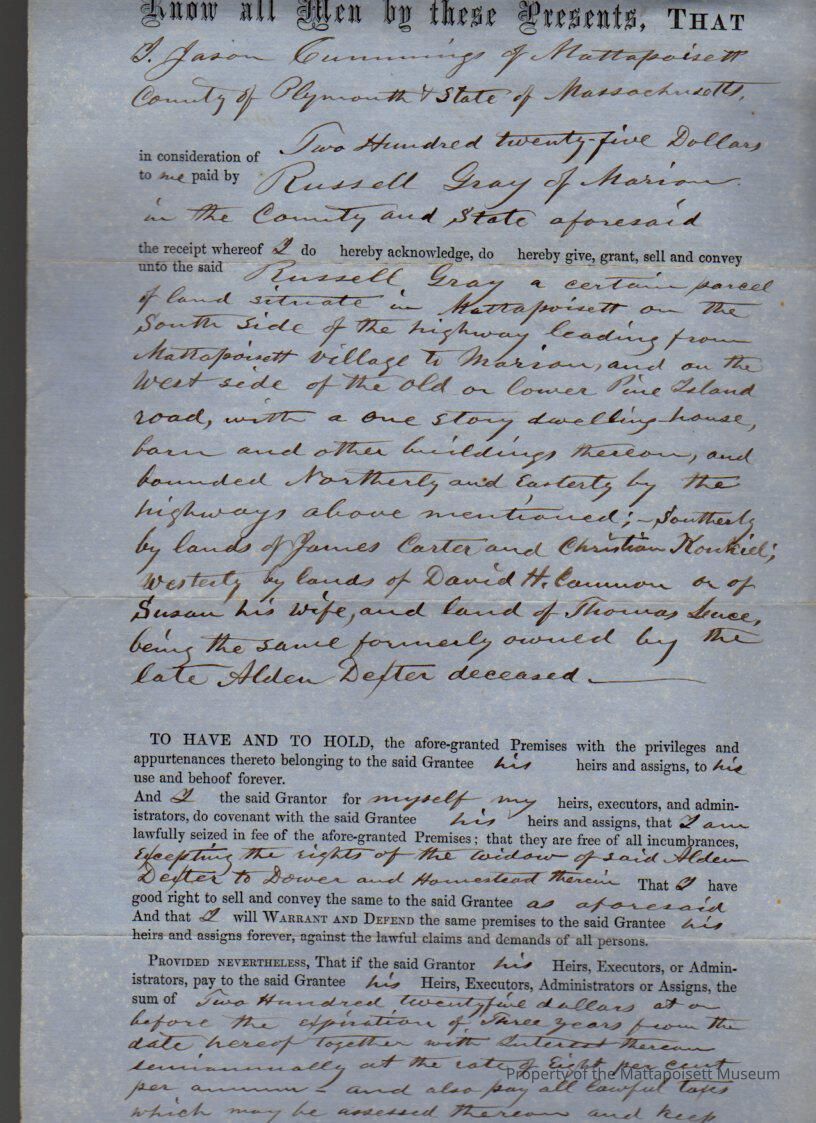 Know all Men by these Presents, THAT
I, Jason Cummings of Mattapoisett
County of Plymouth & State of Massachusetts,
in consideration of Two Hundred twenty-five Dollars
to me paid by Russell Gray of Marion
in the County and State aforesaid
the receipt whereof I do hereby acknowledge, do hereby give, grant, sell and convey
unto the said Russell Gray a certain parcel
of land situate in Mattapoisett on the
South side of the highway leading from
Mattapoisett village to Marion, and on the
West side of the old or lower Pine Island
road, with a one story dwelling-house,
barn and other buildings thereon, and
bounded Northerly and Easterly by the
highways above mentioned; - Southerly
by lands of James Carter and Christian
Westerly by lands of David H. Cannon or of
Susan his wife, and land of Thomas Luce,
being the same formerly owned by the
late Alden Dexter deceased
TO HAVE AND TO HOLD, the afore-granted Premises with the privileges and
appurtenances thereto belonging to the said Grantee his heirs and assigns, to his
use and behoof forever.
And I the said Grantor for myself my heirs, executors, and admin-
istrators, do covenant with the said Grantee his heirs and assigns, that I am
lawfully seized in fee of the afore-granted Premises; that they are free of all incumbrances,
Excepting the rights of the widow of said Alden
Dexter to Dower and Homestead therein That I have
good right to sell and convey the same to the said Grantee as aforesaid
And that I will WARRANT AND DEFEND the same premises to the said Grantee his
heirs and assigns forever, against the lawful claims and demands of all persons.
PROVIDED NEVERTHELESS, That if the said Grantor his Heirs, Executors, or Admin-
istrators, pay to the said Grantee his Heirs, Executors, Administrators or Assigns, the
sum of Two Hundred twenty five dollars at or
before the expiration of Three years from the
date hereof together with Interest thereon
semiannually at the rate of Eight per cent
per annum - and also pay all lawful taxes
which may be assessed thereon and keep
Property of the Mattapoisett Museum